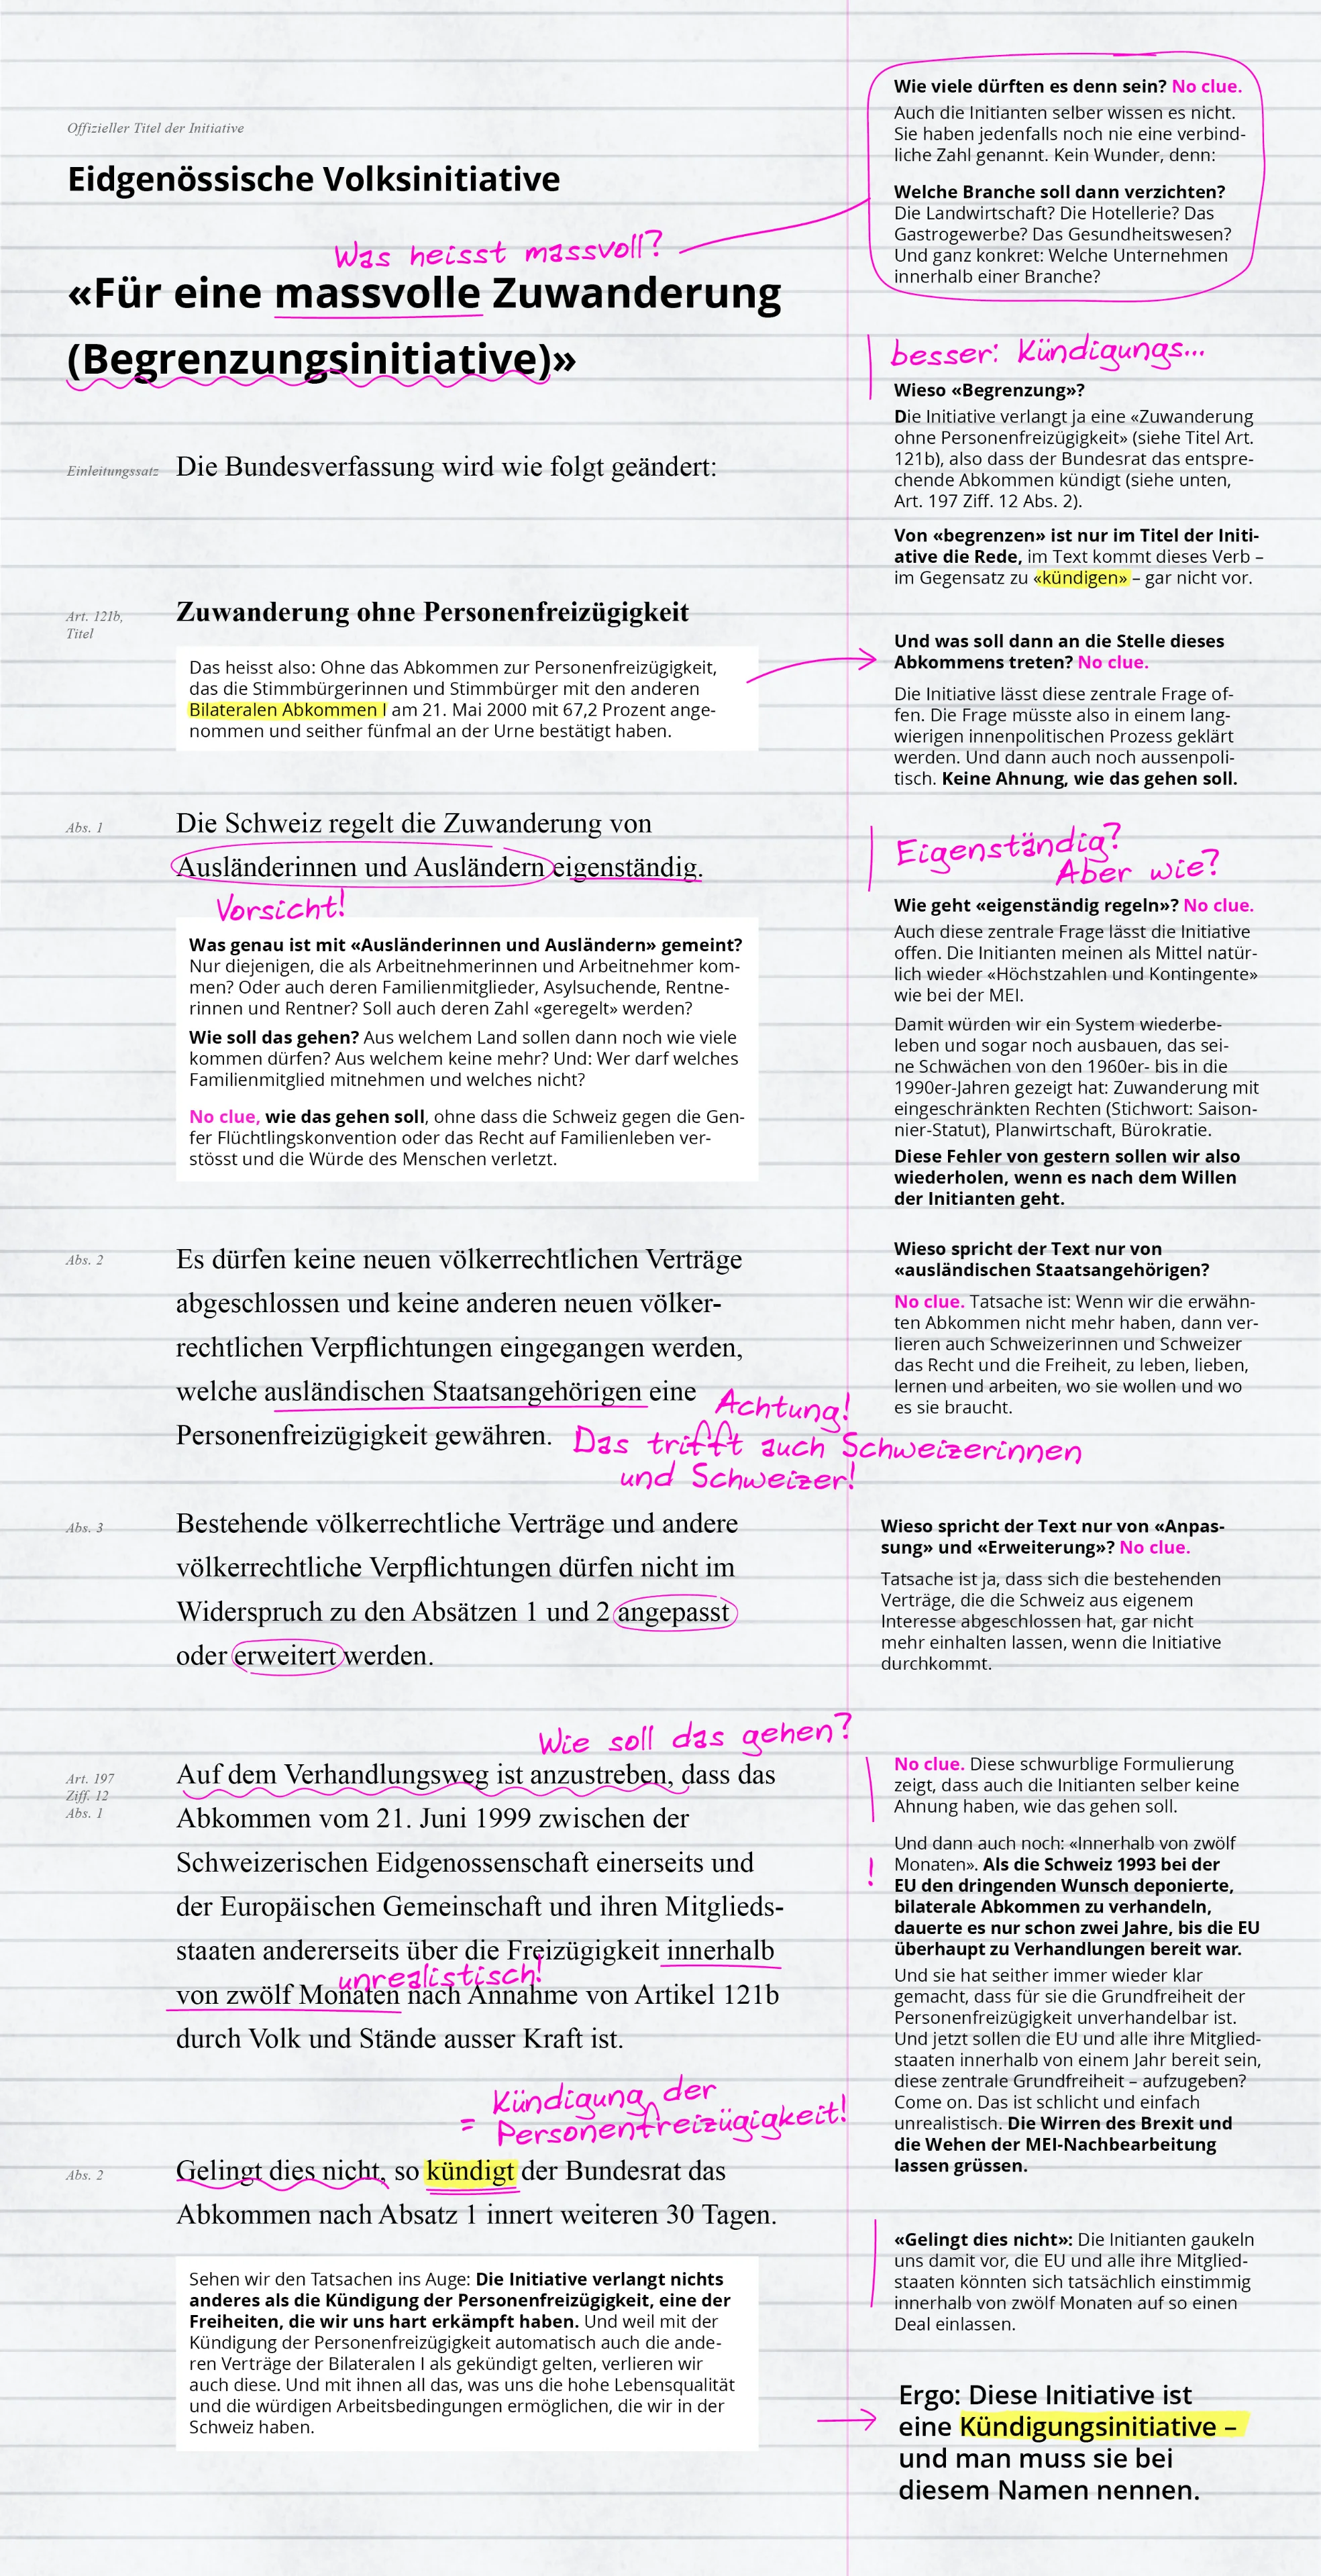 Offizieller Titel der Initiative
Eidgenössische Volksinitiative
Was heisst massvoll?
«Für eine massvolle Zuwanderung
(Begrenzungsinitiative)»
Wie viele dürften es denn sein? No clue.
Auch die Initianten selber wissen es nicht.
Sie haben jedenfalls noch nie eine verbind-
liche Zahl genannt. Kein Wunder, denn:
Welche Branche soll dann verzichten?
Die Landwirtschaft? Die Hotellerie? Das
Gastrogewerbe? Das Gesundheitswesen?
Und ganz konkret: Welche Unternehmen
innerhalb einer Branche?
besser: Kündigungs...
Wieso «Begrenzung»?
Die Initiative verlangt ja eine «Zuwanderung
ohne Personenfreizügigkeit» (siehe Titel Art.
121b), also dass der Bundesrat das entspre-
chende Abkommen kündigt (siehe unten,
Art. 197 Ziff. 12 Abs. 2).
Von «begrenzen» ist nur im Titel der Initi-
ative die Rede, im Text kommt dieses Verb –
im Gegensatz zu «kündigen» – gar nicht vor.
Einleitungssatz
Die Bundesverfassung wird wie folgt geändert:
Art. 121b,
Titel
Zuwanderung ohne Personenfreizügigkeit
Das heisst also: Ohne das Abkommen zur Personenfreizügigkeit,
das die Stimmbürgerinnen und Stimmbürger mit den anderen
Bilateralen Abkommen I am 21. Mai 2000 mit 67,2 Prozent ange-
nommen und seither fünfmal an der Urne bestätigt haben.
Und was soll dann an die Stelle dieses
Abkommens treten? No clue.
Die Initiative lässt diese zentrale Frage of-
fen. Die Frage müsste also in einem lang-
wierigen innenpolitischen Prozess geklärt
werden. Und dann auch noch aussenpoli-
tisch. Keine Ahnung, wie das gehen soll.
Abs. 1
Die Schweiz regelt die Zuwanderung von
Ausländerinnen und Ausländern eigenständig.
Vorsicht!
Was genau ist mit «Ausländerinnen und Ausländern» gemeint?
Nur diejenigen, die als Arbeitnehmerinnen und Arbeitnehmer kom-
men? Oder auch deren Familienmitglieder, Asylsuchende, Rentne-
rinnen und Rentner? Soll auch deren Zahl «geregelt» werden?
Wie soll das gehen? Aus welchem Land sollen dann noch wie viele
kommen dürfen? Aus welchem keine mehr? Und: Wer darf welches
Familienmitglied mitnehmen und welches nicht?
No clue, wie das gehen soll, ohne dass die Schweiz gegen die Gen-
fer Flüchtlingskonvention oder das Recht auf Familienleben ver-
stösst und die Würde des Menschen verletzt.
Eigenständig?
Aber wie?
Wie geht «eigenständig regeln»? No clue.
Auch diese zentrale Frage lässt die Initiative
offen. Die Initianten meinen als Mittel natür-
lich wieder «Höchstzahlen und Kontingente»
wie bei der MEI.
Damit würden wir ein System wiederbe-
leben und sogar noch ausbauen, das sei-
ne Schwächen von den 1960er- bis in die
1990er-Jahren gezeigt hat: Zuwanderung mit
eingeschränkten Rechten (Stichwort: Saison-
nier-Statut), Planwirtschaft, Bürokratie.
Diese Fehler von gestern sollen wir also
wiederholen, wenn es nach dem Willen
der Initianten geht.
Abs. 2
Es dürfen keine neuen völkerrechtlichen Verträge
abgeschlossen und keine anderen neuen völker-
rechtlichen Verpflichtungen eingegangen werden,
welche ausländischen Staatsangehörigen eine
Personenfreizügigkeit gewähren.
Achtung!
Das trifft auch Schweizerinnen
und Schweizer!
Wieso spricht der Text nur von
«ausländischen Staatsangehörigen?
No clue. Tatsache ist: Wenn wir die erwähn-
ten Abkommen nicht mehr haben, dann ver-
lieren auch Schweizerinnen und Schweizer
das Recht und die Freiheit, zu leben, lieben,
lernen und arbeiten, wo sie wollen und wo
es sie braucht.
Abs. 3
Bestehende völkerrechtliche Verträge und andere
völkerrechtliche Verpflichtungen dürfen nicht im
Widerspruch zu den Absätzen 1 und 2 angepasst
oder erweitert werden.
Wieso spricht der Text nur von «Anpas-
sung» und «Erweiterung»? No clue.
Tatsache ist ja, dass sich die bestehenden
Verträge, die die Schweiz aus eigenem
Interesse abgeschlossen hat, gar nicht
mehr einhalten lassen, wenn die Initiative
durchkommt.
Wie soll das gehen?
Art. 197
Ziff. 12
Abs. 1
Auf dem Verhandlungsweg ist anzustreben, dass das
Abkommen vom 21. Juni 1999 zwischen der
Schweizerischen Eidgenossenschaft einerseits und
der Europäischen Gemeinschaft und ihren Mitglieds-
staaten andererseits über die Freizügigkeit innerhalb
unrealistisch!
von zwölf Monaten nach Annahme von Artikel 121b
durch Volk und Stände ausser Kraft ist.
No clue. Diese schwurblige Formulierung
zeigt, dass auch die Initianten selber keine
Ahnung haben, wie das gehen soll.
!
Und dann auch noch: «Innerhalb von zwölf
Monaten». Als die Schweiz 1993 bei der
EU den dringenden Wunsch deponierte,
bilaterale Abkommen zu verhandeln,
dauerte es nur schon zwei Jahre, bis die EU
überhaupt zu Verhandlungen bereit war.
Und sie hat seither immer wieder klar
gemacht, dass für sie die Grundfreiheit der
Personenfreizügigkeit unverhandelbar ist.
Und jetzt sollen die EU und alle ihre Mitglied-
staaten innerhalb von einem Jahr bereit sein,
diese zentrale Grundfreiheit – aufzugeben?
Come on. Das ist schlicht und einfach
unrealistisch. Die Wirren des Brexit und
die Wehen der MEI-Nachbearbeitung
lassen grüssen.
= Kündigung der
Personenfreizügigkeit!
Abs. 2
Gelingt dies nicht, so kündigt der Bundesrat das
Abkommen nach Absatz 1 innert weiteren 30 Tagen.
Sehen wir den Tatsachen ins Auge: Die Initiative verlangt nichts
anderes als die Kündigung der Personenfreizügigkeit, eine der
Freiheiten, die wir uns hart erkämpft haben. Und weil mit der
Kündigung der Personenfreizügigkeit automatisch auch die ande-
ren Verträge der Bilateralen I als gekündigt gelten, verlieren wir
auch diese. Und mit ihnen all das, was uns die hohe Lebensqualität
und die würdigen Arbeitsbedingungen ermöglichen, die wir in der
Schweiz haben.
«Gelingt dies nicht»: Die Initianten gaukeln
uns damit vor, die EU und alle ihre Mitglied-
staaten könnten sich tatsächlich einstimmig
innerhalb von zwölf Monaten auf so einen
Deal einlassen.
Ergo: Diese Initiative ist
eine Kündigungsinitiative –
und man muss sie bei
diesem Namen nennen.